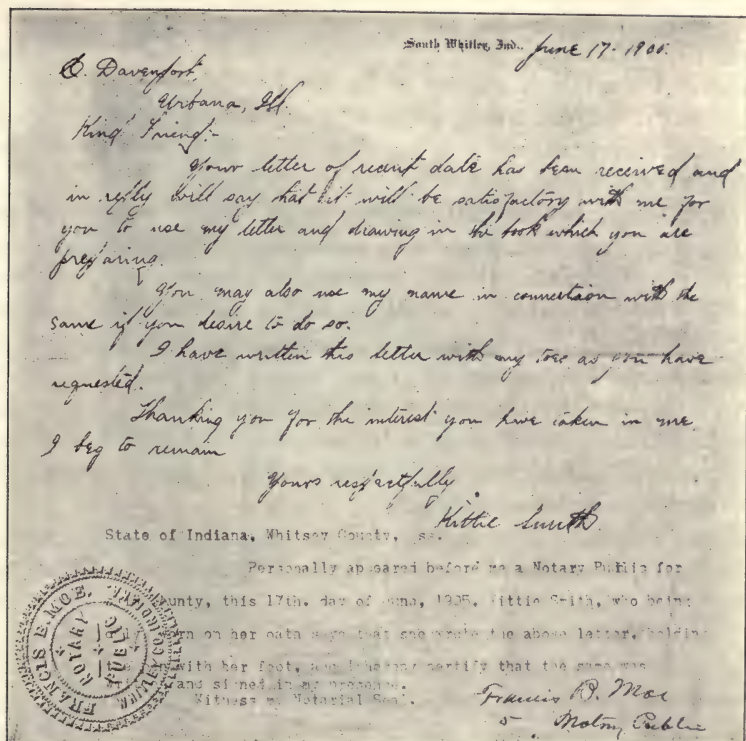 South Whitley, Ind., June 17- 1905.
C. Davenport,
Urbana, Ill.
Kind Friend:-
Your letter of recent date has been received and
in reply will say that it will be satisfactory with me for
you to use my letter and drawing in the book which you are
preparing.
You may also use my name in connection with the
same if you desire to do so.
I have written this letter with my toes as you have
requested.
Thanking you for the interest you have taken in me
I beg to remain
Yours respectfully
Kittie Smith.
State of Indiana, Whitley County, ss.
Personally appeared before me a Notary Public for
county, this 17th. day of June, 1905, Kittie Smith, who being
on her oath says that she wrote the above letter, holding
with her foot, and I hereby certify that the same was
and signed in my presence.
Witness my Notarial Seal.
Francis E. Moe
Notary Public
FRANCIS E. MOE.
NOTARY PUBLIC
WHITLEY CO.